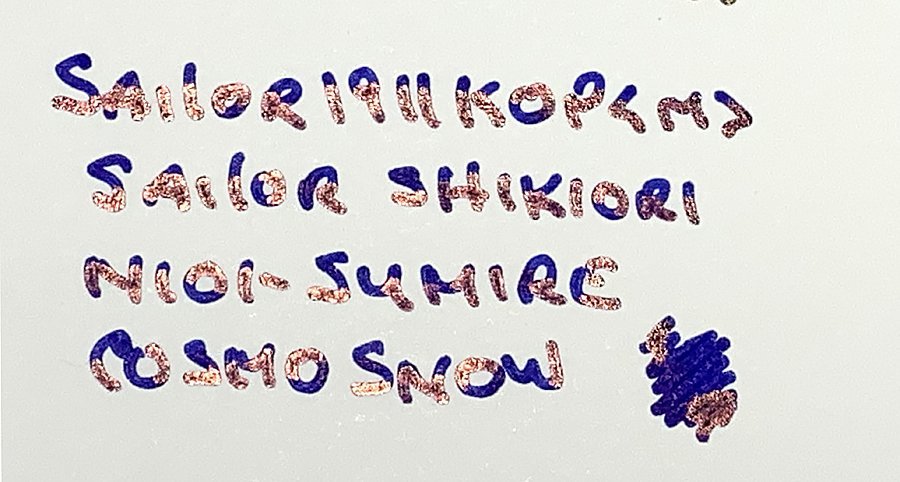 SAILOR 1911 KOP <M>
SAILOR SHIKIORI
NIOI-SUMIRE
COSMO SNOW